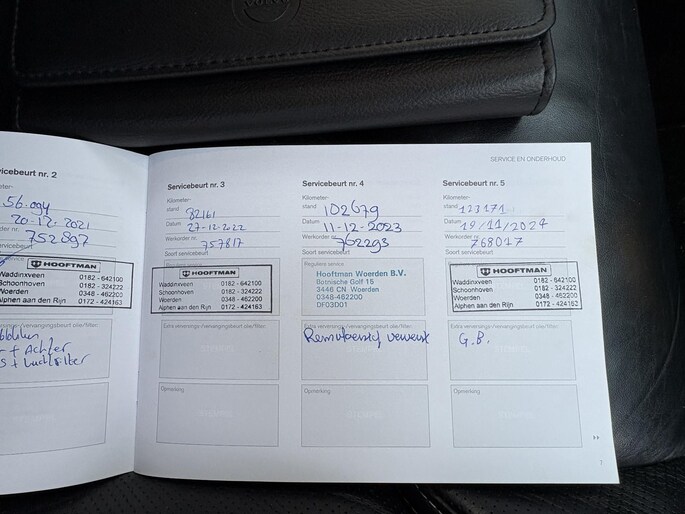 VOLVO
SERVICE EN ONDERHOUD
vicebeurt nr. 2
56.094
20-12-2021
752897
HOOFTMAN
Waddinxveen 0182 - 642100
Schoonhoven 0182 - 324222
Woerden 0348 - 462200
Alphen aan den Rijn 0172 - 424163
+ Achter
+ Luchtfilter
Servicebeurt nr. 3
Kilometer-
stand 82161
Datum 27-12-2022
Werkorder nr. 757817
Soort servicebeurt
HOOFTMAN
Waddinxveen 0182 - 642100
Schoonhoven 0182 - 324222
Woerden 0348 - 462200
Alphen aan den Rijn 0172 - 424163
Extra verversings-/vervangingsbeurt olie/filter:
Opmerking
Servicebeurt nr. 4
Kilometer-
stand 102679
Datum 11-12-2023
Werkorder nr. 762293
Soort servicebeurt
Reguliere service
Hooftman Woerden B.V.
Botnische Golf 15
3446 CN Woerden
0348-462200
DF03D01
Extra verversings-/vervangingsbeurt olie/filter:
Remvloeistof ververst
Opmerking
Servicebeurt nr. 5
Kilometer-
stand 123171
Datum 19/11/2024
Werkorder nr. 768017
Soort servicebeurt
HOOFTMAN
Waddinxveen 0182 - 642100
Schoonhoven 0182 - 324222
Woerden 0348 - 462200
Alphen aan den Rijn 0172 - 424163
Extra verversings-/vervangingsbeurt olie/filter:
G.B.
Opmerking
7